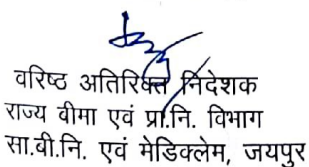 वरिष्ठ अतिरिक्त निदेशक
राज्य बीमा एवं प्रा.नि. विभाग
सा.बी.नि. एवं मेडिक्लेम, जयपुर